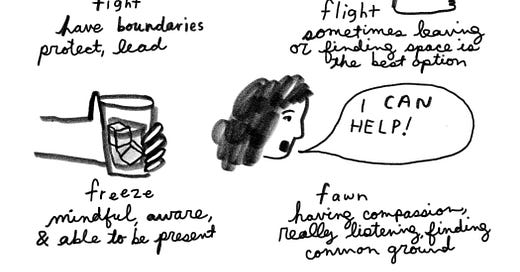 fight
have boundaries
protect, lead
flight
sometimes leaving
or finding space is
the best option
I CAN
HELP!
freeze
mindful, aware,
& able to be present
fawn
having compassion,
really listening, finding
common ground